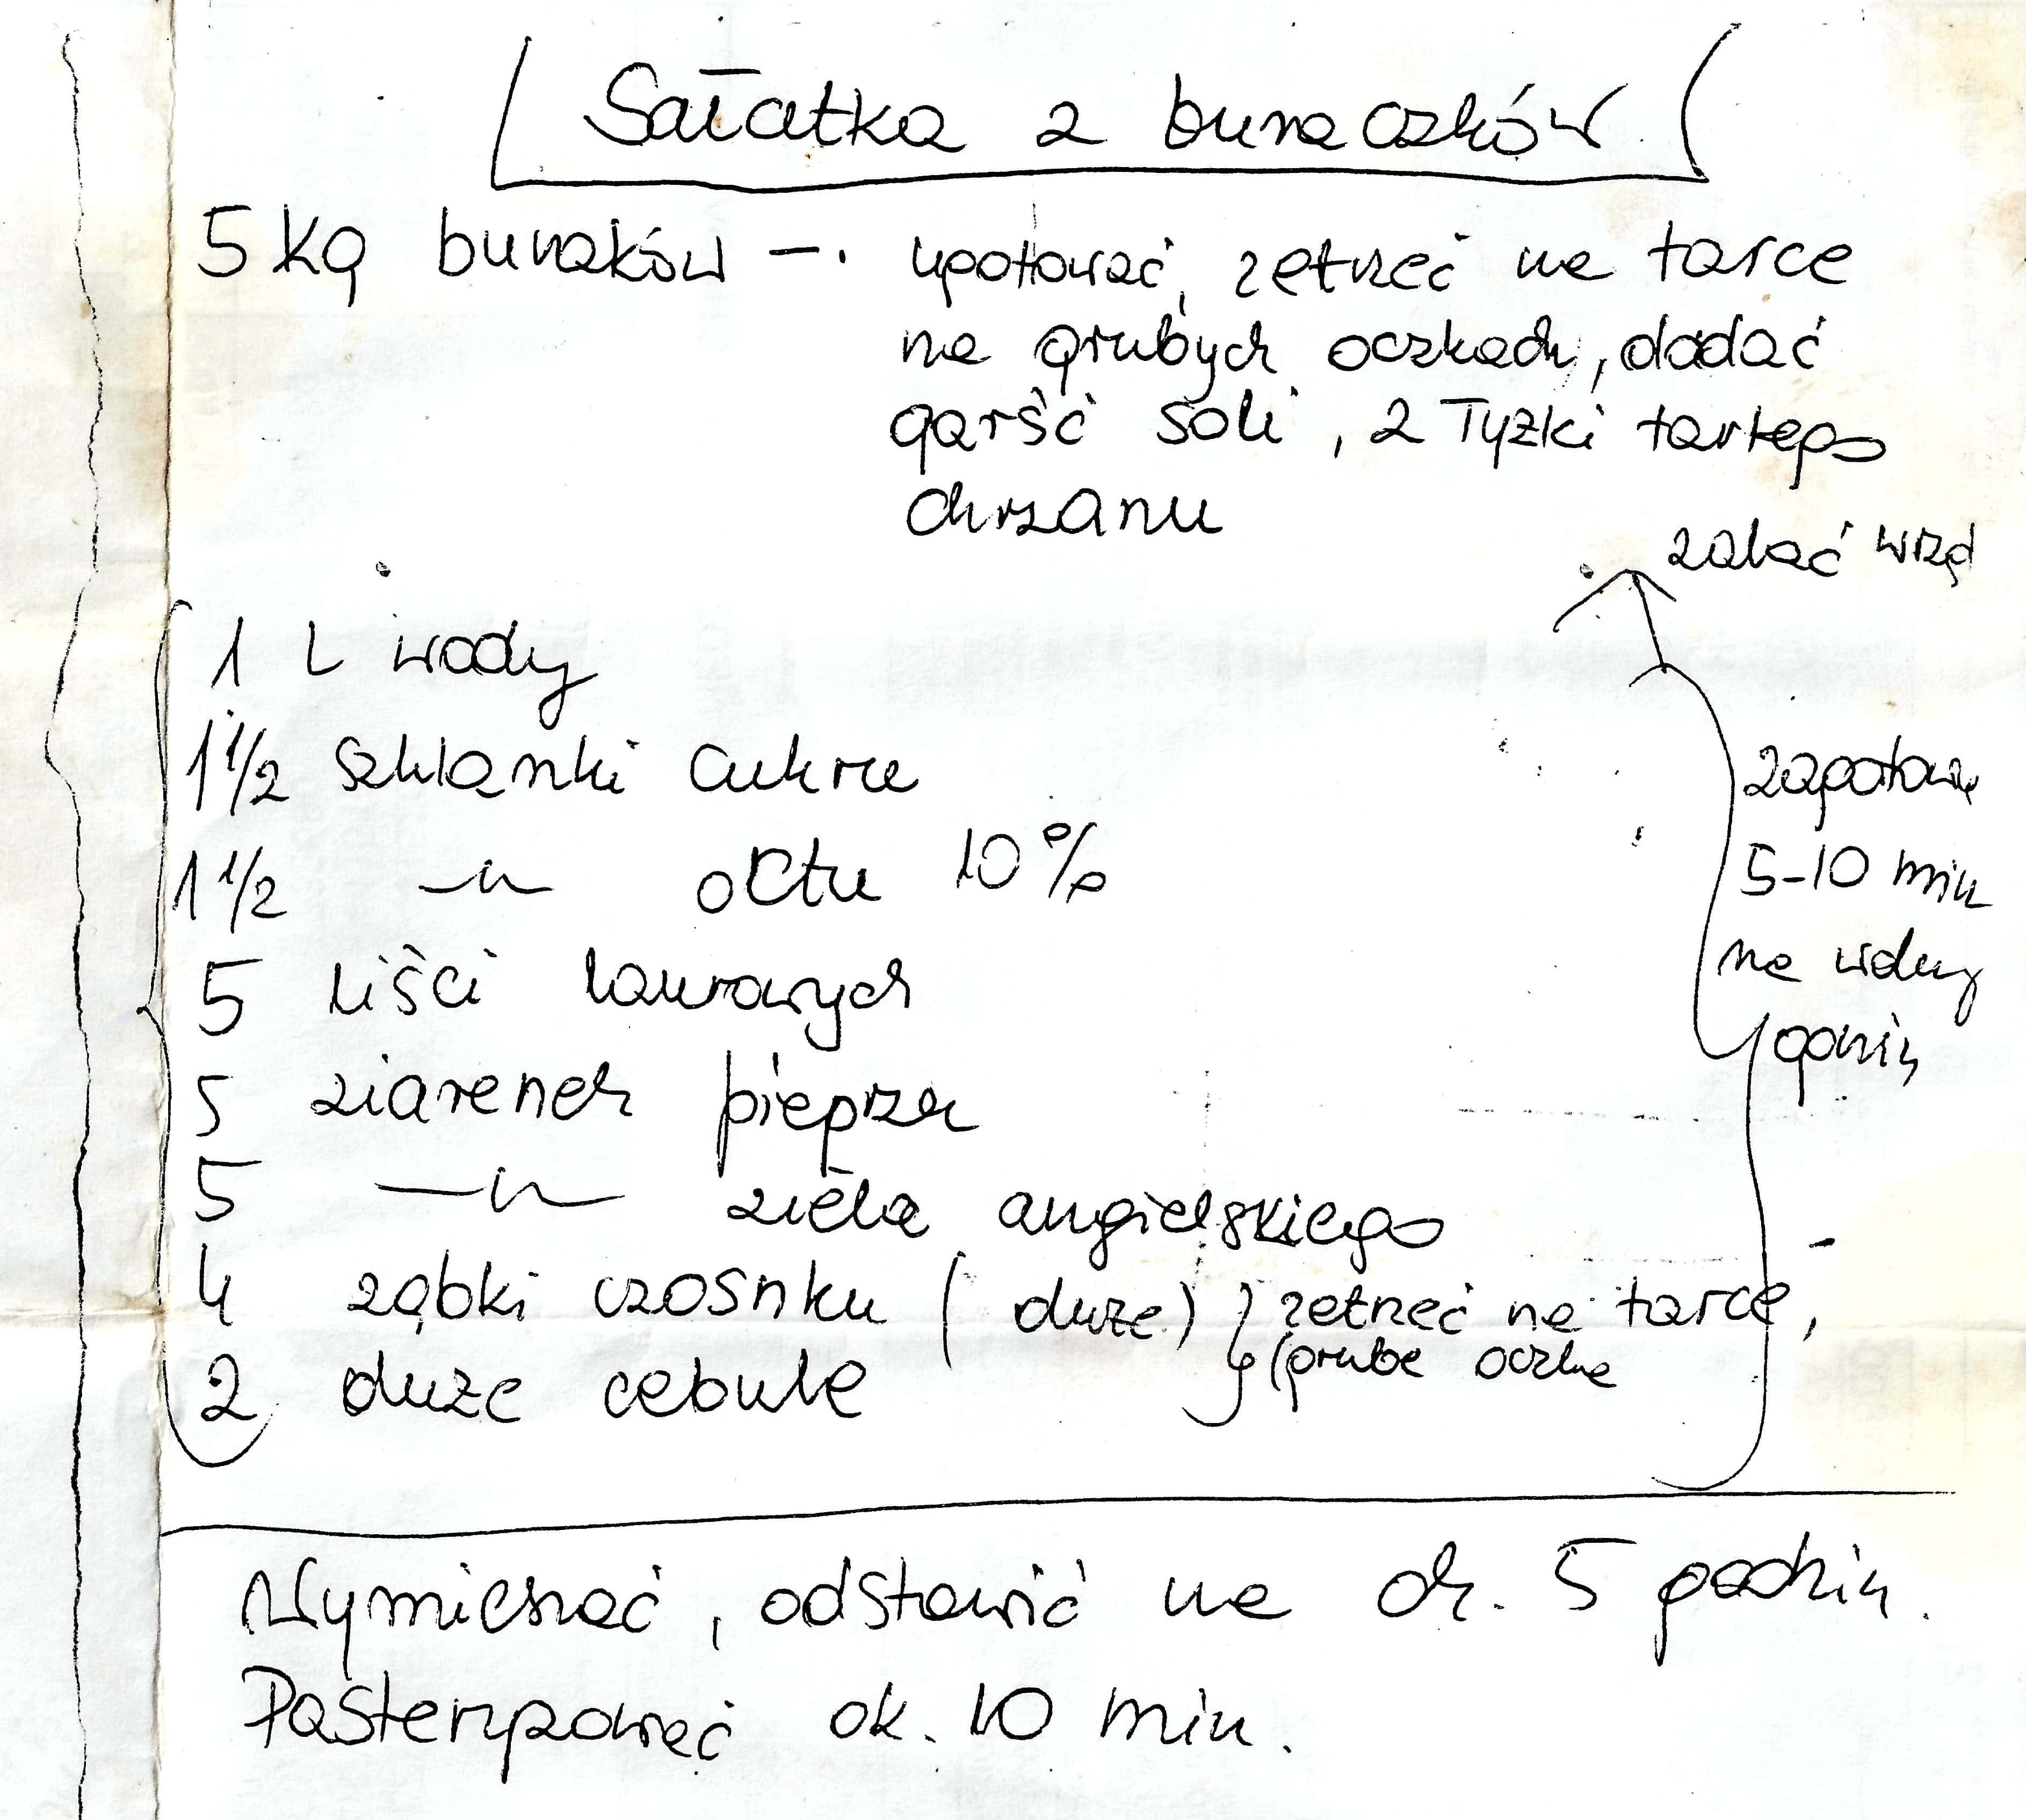 Sałatka z buraczków
5 kg buraków — ugotować, zetrzeć na tarce
na grubych oczkach, dodać
garść soli, 2 łyżki tartego
chrzanu
zalać wrzą
1 L wody
1 1/2 szklanki cukru
1 1/2 —〃— octu 10%
5 liści laurowych
5 ziarenek pieprzu
5 —〃— ziela angielskiego
4 ząbki czosnku (duże) } zetrzeć na tarce,
2 duże cebule (grube oczka
zagotować
5-10 min
na wolnym
ogniu
Wymieszać, odstawić na ok. 5 godzin.
Pasteryzować ok. 10 min.